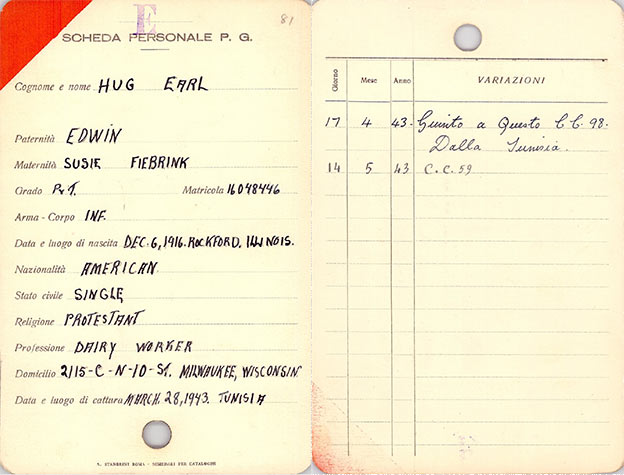 E
81
SCHEDA PERSONALE P. G.
Cognome e nome HUG EARL
Paternità EDWIN
Maternità SUSIE FIEBRINK
Grado PVT. Matricola 16048446
Arma - Corpo INF.
Data e luogo di nascita DEC. 6, 1916. ROCKFORD, ILLINOIS.
Nazionalità AMERICAN
Stato civile SINGLE
Religione PROTESTANT
Professione DAIRY WORKER
Domicilio 2115-C-N-10-ST. MILWAUKEE, WISCONSIN
Data e luogo di cattura MARCH. 28, 1943. TUNISIA
A. STANDERINI ROMA - SCHEDARI PER CATALOGHI
Giorno Mese Anno VARIAZIONI
17 4 43- Giunto a Questo C.C. 98.
Dalla Tunisia.
14 5 43 C.C. 59